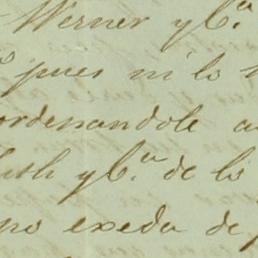 Werner y Cª
pues ni lo
ordenandole a
uth y Cª de lo
no exeda de